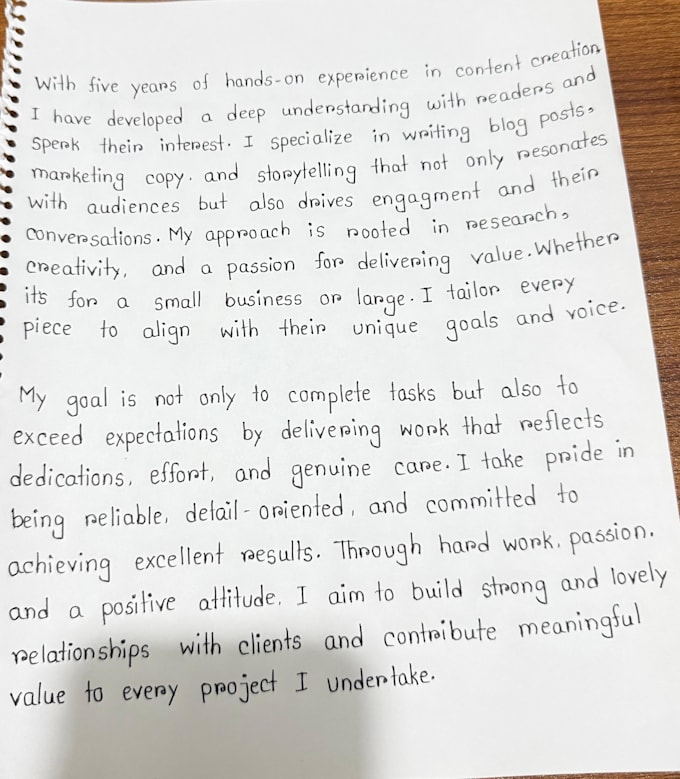 With five years of hands-on experience in content creation
I have developed a deep understanding with readers and
sperk their interest. I specialize in writing blog posts,
marketing copy. and storytelling that not only resonates
with audiences but also drives engagment and their
conversations. My approach is rooted in research,
creativity, and a passion for delivering value. Whether
it's for a small business or large. I tailor every
piece to align with their unique goals and voice.
My goal is not only to complete tasks but also to
exceed expectations by delivering work that reflects
dedications, effort, and genuine care. I take pride in
being reliable, detail-oriented, and committed to
achieving excellent results. Through hard work, passion.
and a positive attitude, I aim to build strong and lovely
relationships with clients and contribute meaningful
value to every project I undertake.